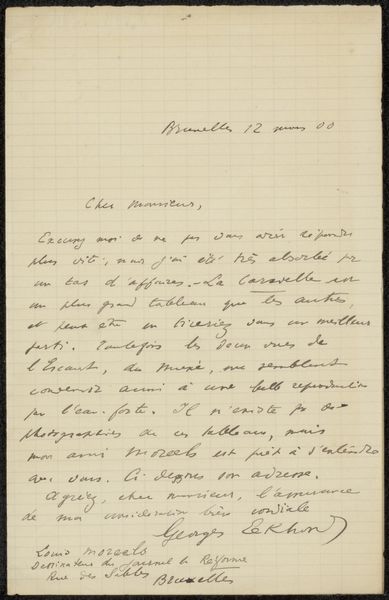 Bruxelles 12 mars 00
Cher Monsieur,
Excusez moi de ne pas vous avoir répondu
plus vite, mais j'ai été très absorbé par
un tas d'affaires. - La Caravelle est
un plus grand tableau que les autres,
et peut être en tireriez vous un meilleur
parti. Toutefois les deux vues de
l'Escaut, du musée, me semblent
convenir aussi à une belle reproduction
par l'eau-forte. Il n'existe pas de
photographies de ces tableaux, mais
mon ami Moreels est prêt à s'entendre
avec vous. Ci dessous son adresse.
Agréez, cher monsieur, l'assurance
de ma considération très cordiale
Georges Eekhoud
Louis Moreels
Dessinateur du journal la Réforme
Rue des Sables
Bruxelles